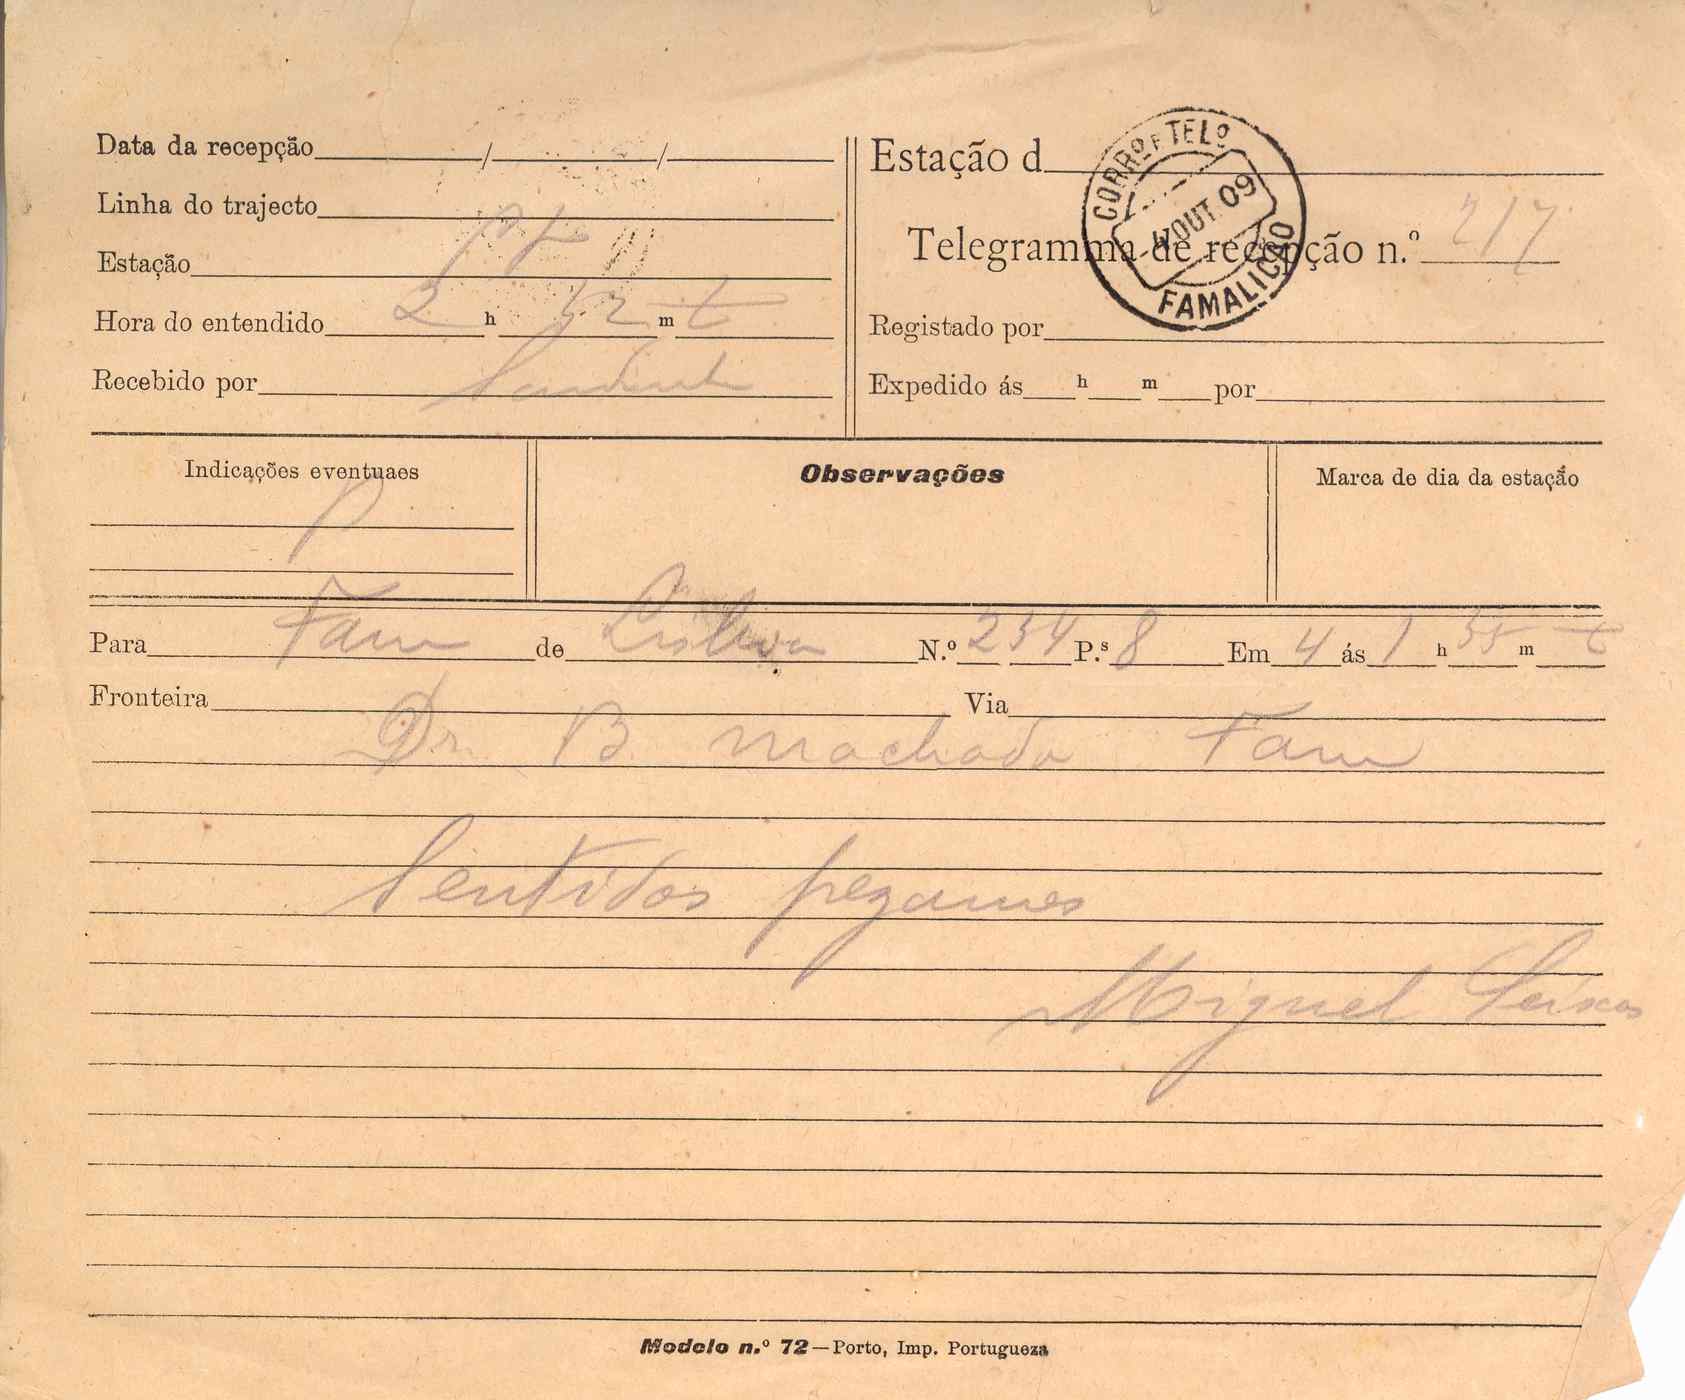 Data da recepção / /
Linha do trajecto
Estação
Hora do entendido 2 h 52 m t
Recebido por
Estação d
CORRO E TELO
4 OUT. 09
FAMALICÃO
Telegramma de recepção n.º 217
Registado por
Expedido ás h m por
Indicações eventuaes
P
Observações
Marca de dia da estação
Para Fam de Lisboa N.º 234 P.s 8 Em 4 ás 1 h 35 m t
Fronteira Via
Dr. B. Machado Fam
Sentidos pezames
Miguel Seixas
Modelo n.º 72 — Porto, Imp. Portugueza